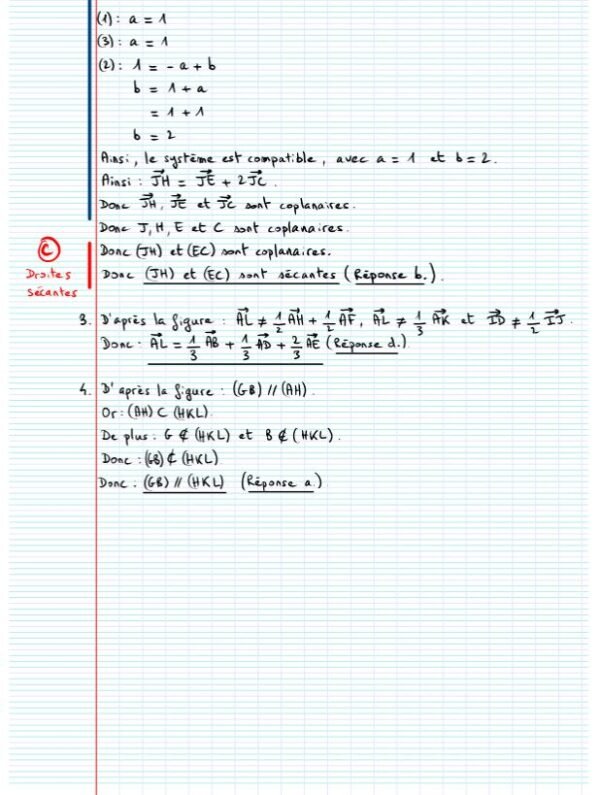 (1) : a = 1
(3) : a = 1
(2) : 1 = - a + b
b = 1 + a
= 1 + 1
b = 2
Ainsi, le système est compatible, avec a = 1 et b = 2.
Ainsi : JH⃗ = JE⃗ + 2JC⃗.
Donc JH⃗, JE⃗ et JC⃗ sont coplanaires.
Donc J, H, E et C sont coplanaires.
C
Droites
Sécantes
Donc (JH) et (EC) sont coplanaires.
Donc (JH) et (EC) sont sécantes (Réponse b.).
3. D'après la figure : AL⃗ ≠ 1/2 AH⃗ + 1/2 AF⃗, AL⃗ ≠ 1/3 AK⃗ et ID⃗ ≠ 1/2 IJ⃗.
Donc : AL⃗ = 1/3 AB⃗ + 1/3 AD⃗ + 2/3 AE⃗ (Réponse d.)
4. D'après la figure : (GB) // (AH).
Or : (AH) ⊂ (HKL).
De plus : G ∉ (HKL) et B ∉ (HKL).
Donc : (GB) ⊄ (HKL)
Donc : (GB) // (HKL) (Réponse a.)